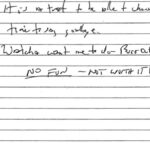 It is no treat to be able to
time to say goodbye.
want me to do
NO FUN — NOT WORTH IT!